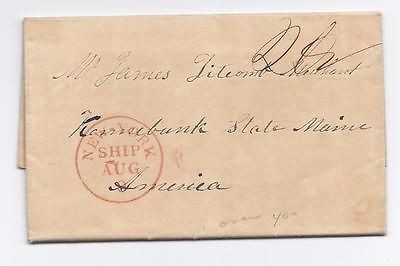 Mr James Titcomb
Kennebunk State Maine
America
NEW YORK
SHIP
AUG
8
over